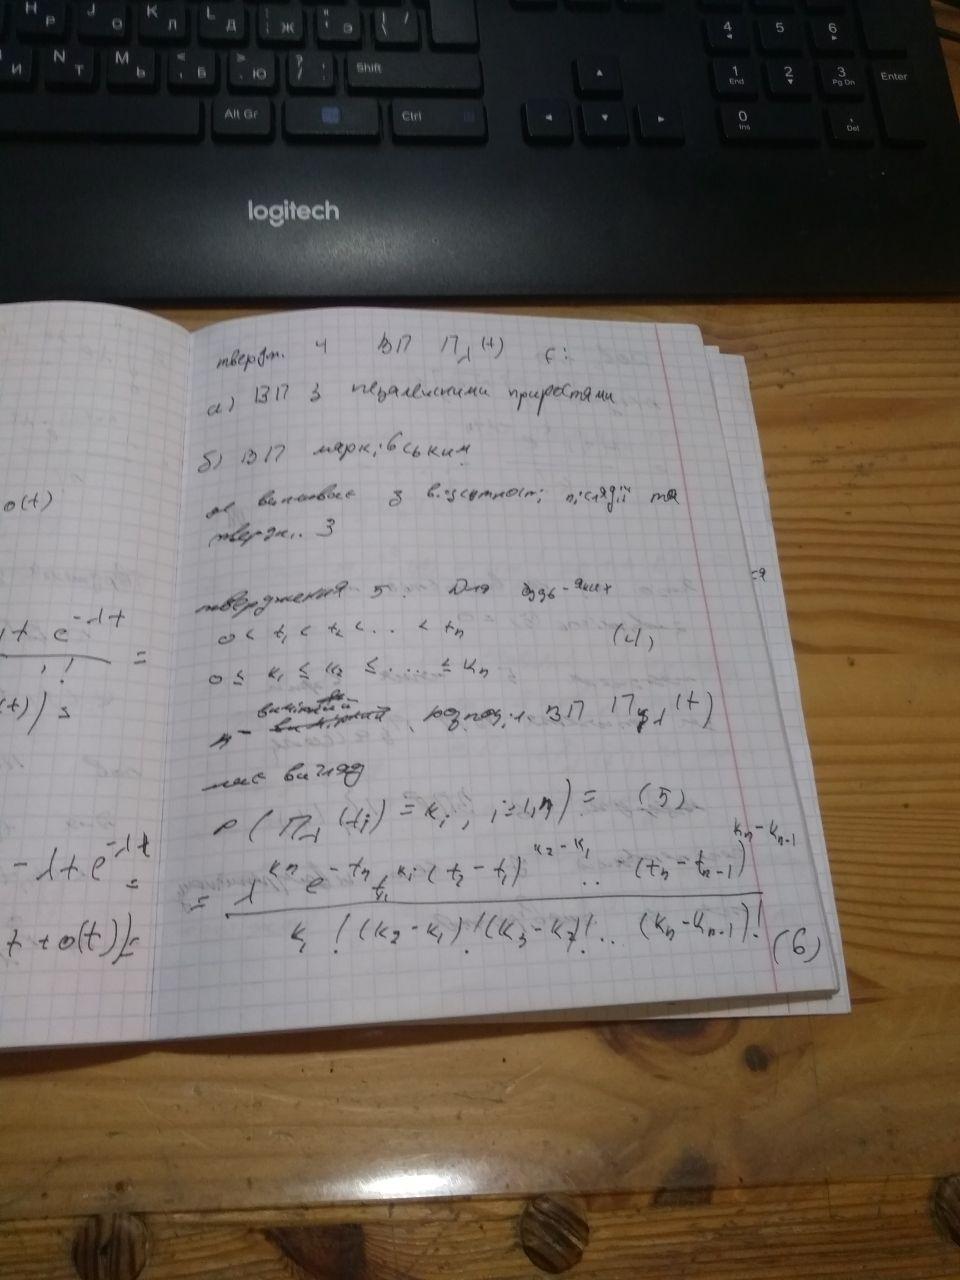 Н Р
J О
К Л
L Д
: ; Ж
" ' Э
| \ /
4
5
6
И
N Т
M Ь
< , Б
> . Ю
? /
Shift
1 End
2
3 Pg Dn
Enter
Alt Gr
Ctrl
0 Ins
. Del
logitech
твердж. 4 ВП Π_λ(t) є:
а) ВП з незалежними приростами
б) ВП марківським
випливає з відсутності післядії та
твердж. 3
твердження 5. Для будь-яких
0 < t₁ < t₂ < ... < tₙ (4)
0 ≤ k₁ ≤ k₂ ≤ ... ≤ kₙ
n - розподіл ВП Π_λ(t)
має вигляд
P(Π_λ(tᵢ) = kᵢ, i=1,n) = (5)
= λ^{kₙ} e^{-tₙ} t₁^{k₁} (t₂ - t₁)^{k₂-k₁} .. (tₙ - tₙ₋₁)^{kₙ-kₙ₋₁}
k₁! (k₂ - k₁)! (k₃ - k₂)! .. (kₙ - kₙ₋₁)! (6)
o(t)
t e^{-λt} =
- λt e^{-λt} =
+ o(t)) =